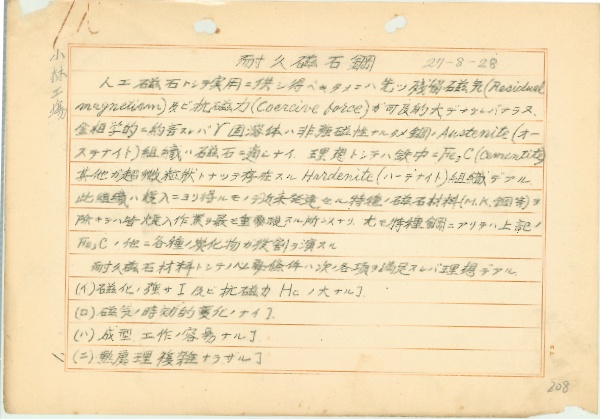 耐久磁石鋼 27-8-28
人工磁石トシテ実用ニ供シ得ベキタメニハ先ヅ残留磁気(Residual
magnetism)及ビ抗磁力(Coercive force)ガ可及的大デナケレバナラヌ
金相学的ニ約言スレバγ固溶体ハ非強磁性ナルタメ鋼ハAustenite(オー
ステナイト)組織ハ磁石ニ適シナイ. 理想トシテハ鉄中ニFe₃C(Cementite)
其他ガ超微粒状トナツテ存在スルHardenite(ハーデナイト)組織デアル
此組織ハ焼入ニヨリ得ルモノデ近来発達セル特種ノ磁石材料(M.K.鋼等)ヲ
除ケバ皆焼入作業ヲ最モ重要視スル所以ナリ. 尤モ特種鋼ニアリテハ上記ノ
Fe₃Cノ他ニ各種ノ炭化物ガ役割ヲ演スル
耐久磁石材料トシテノ必要條件ハ次ノ各項ヲ満足スレバ理想デアル
(イ)磁化ノ強サI及ビ抗磁力Hcノ大ナル】
(ロ)磁気ノ時効的変化ノナイ】
(ハ)成型工作ノ容易ナル】
(ニ)熱處理複雑ナラザル】
小林工場
208